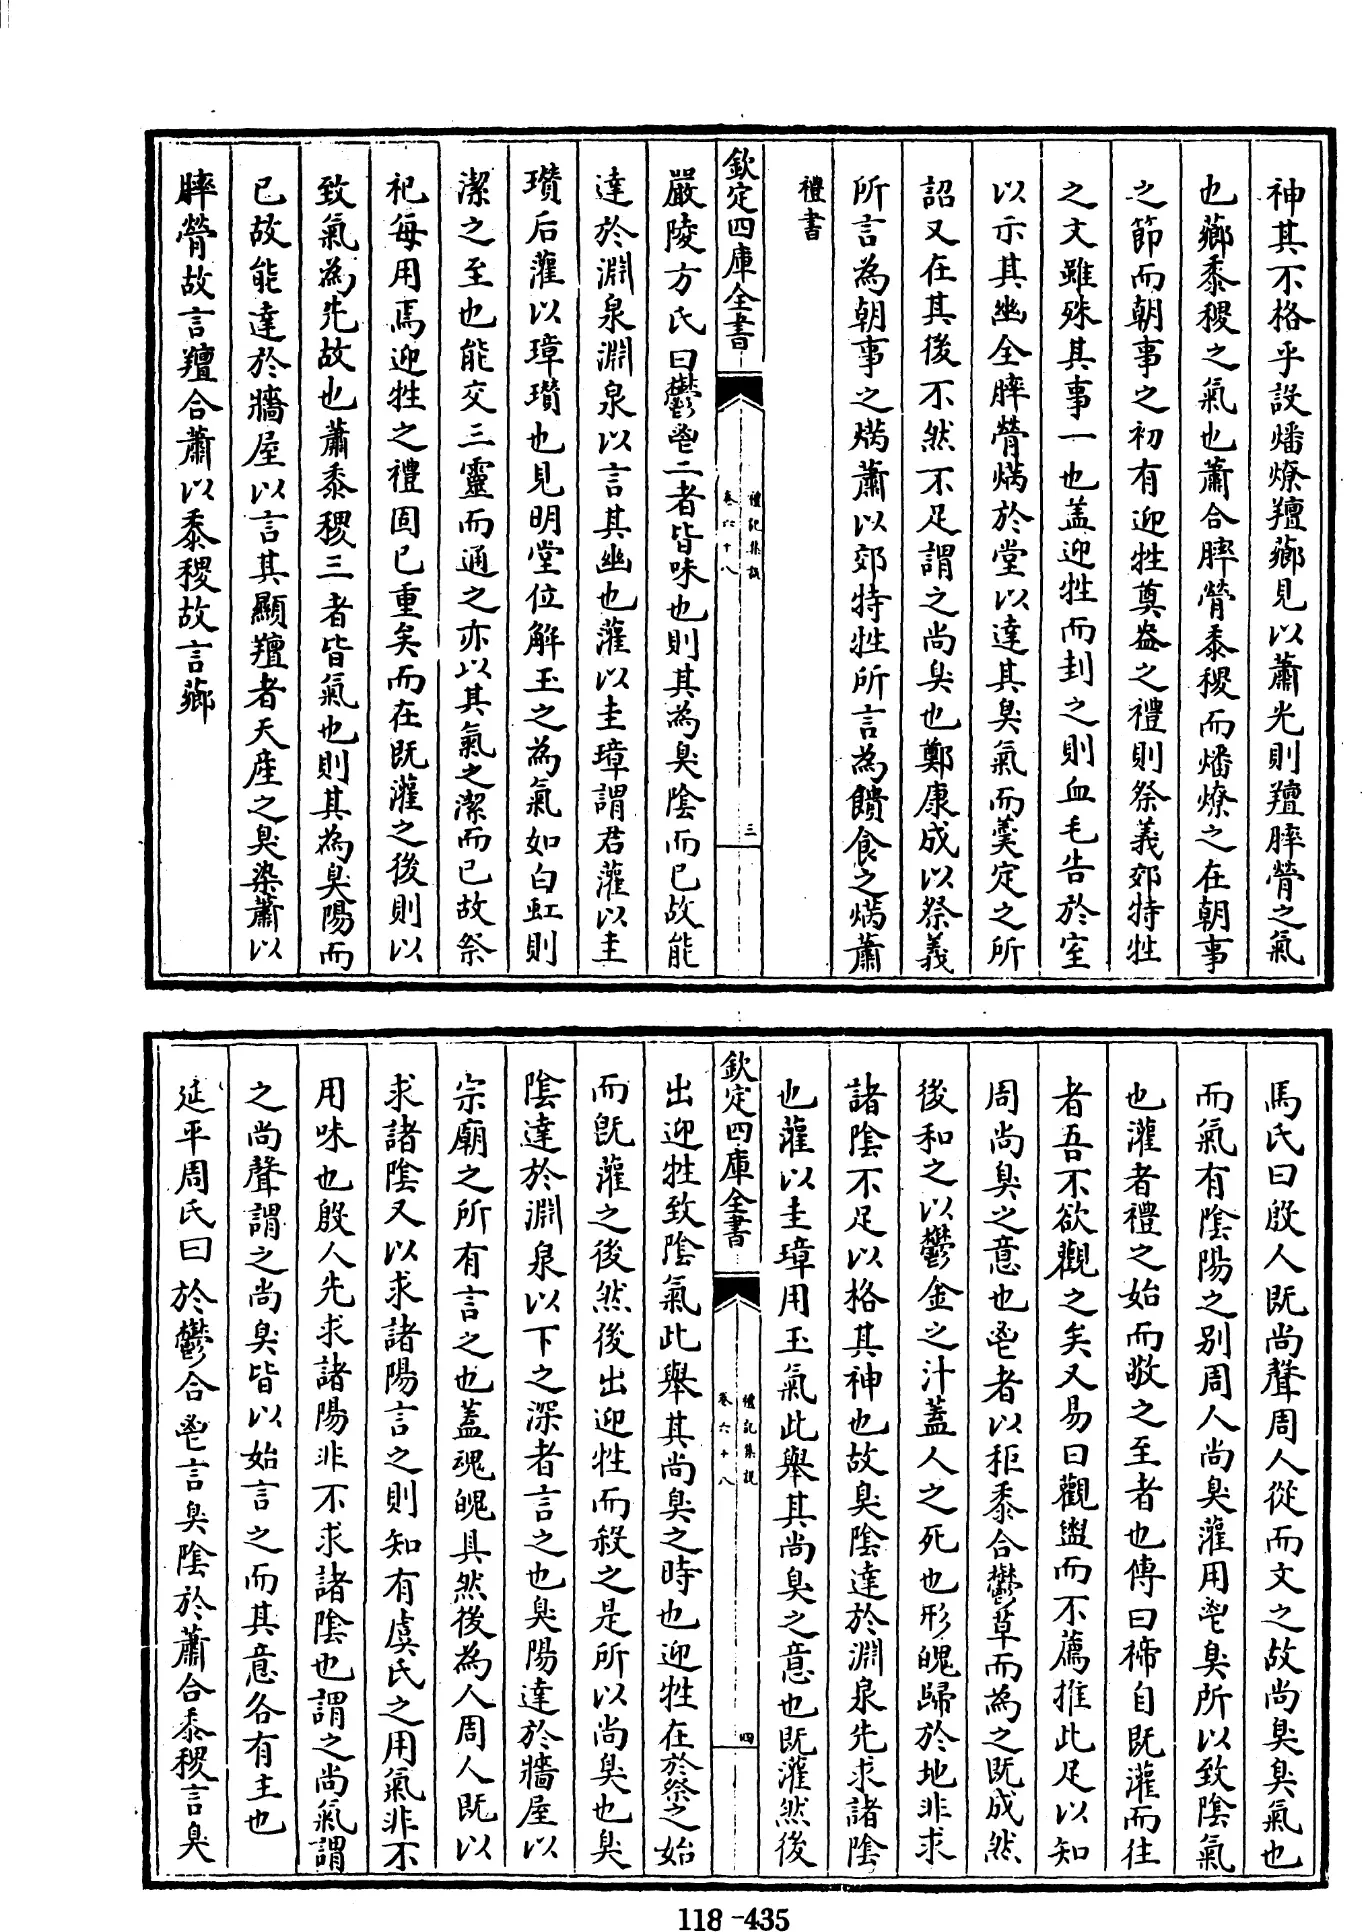 神其不格乎設燔燎羶薌見以蕭光則羶膟膋之氣
也薌黍稷之氣也蕭合膟膋黍稷而燔燎之在朝事
之節而朝事之初有迎牲奠盎之禮則祭義郊特牲
之文雖殊其事一也盖迎牲而刲之則血毛告於室
以示其幽全膟膋焫於堂以達其臭氣而羮定之所
詔又在其後不然不足謂之尚臭也鄭康成以祭義
所言為朝事之焫蕭以郊特牲所言為饋食之焫蕭
禮書
欽定四庫全書
禮記集説
卷六十八
三
嚴陵方氏曰鬱鬯二者皆味也則其為臭陰而已故能
達於淵泉淵泉以言其幽也灌以圭璋謂君灌以圭
瓚后灌以璋瓚也見明堂位解玉之為氣如白虹則
潔之至也能交三靈而通之亦以其氣之潔而已故祭
祀每用焉迎牲之禮固已重矣而在既灌之後則以
致氣為先故也蕭黍稷三者皆氣也則其為臭陽而
已故能達於牆屋以言其顯羶者天産之臭染蕭以
膟膋故言羶合蕭以黍稷故言薌
馬氏曰殷人既尚聲周人從而文之故尚臭臭氣也
而氣有陰陽之别周人尚臭灌用鬯臭所以致陰氣
也灌者禮之始而敬之至者也傳曰禘自既灌而往
者吾不欲觀之矣又易曰觀盥而不薦推此足以知
周尚臭之意也鬯者以秬黍合鬱草而為之既成然
後和之以鬱金之汁蓋人之死也形魄歸於地非求
諸陰不足以格其神也故臭陰達於淵泉先求諸陰
也灌以圭璋用玉氣此舉其尚臭之意也既灌然後
欽定四庫全書
禮記集説
卷六十八
四
出迎牲致陰氣此舉其尚臭之時也迎牲在於祭之始
而既灌之後然後出迎牲而殺之是所以尚臭也臭
陰達於淵泉以下之深者言之也臭陽達於牆屋以
宗廟之所有言之也蓋魂魄具然後為人周人既以
求諸陰又以求諸陽言之則知有虞氏之用氣非不
用味也殷人先求諸陽非不求諸陰也謂之尚氣謂
之尚聲謂之尚臭皆以始言之而其意各有主也
延平周氏曰於鬱合鬯言臭陰於蕭合黍稷言臭
118-435